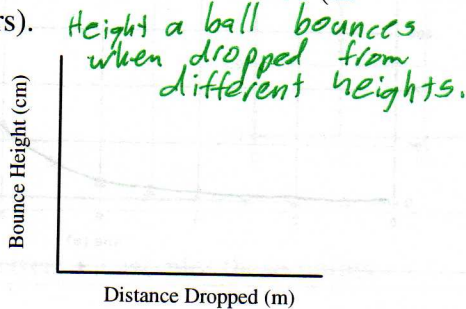 rs).
Height a ball bounces
when dropped from
different heights.
Bounce Height (cm)
Distance Dropped (m)